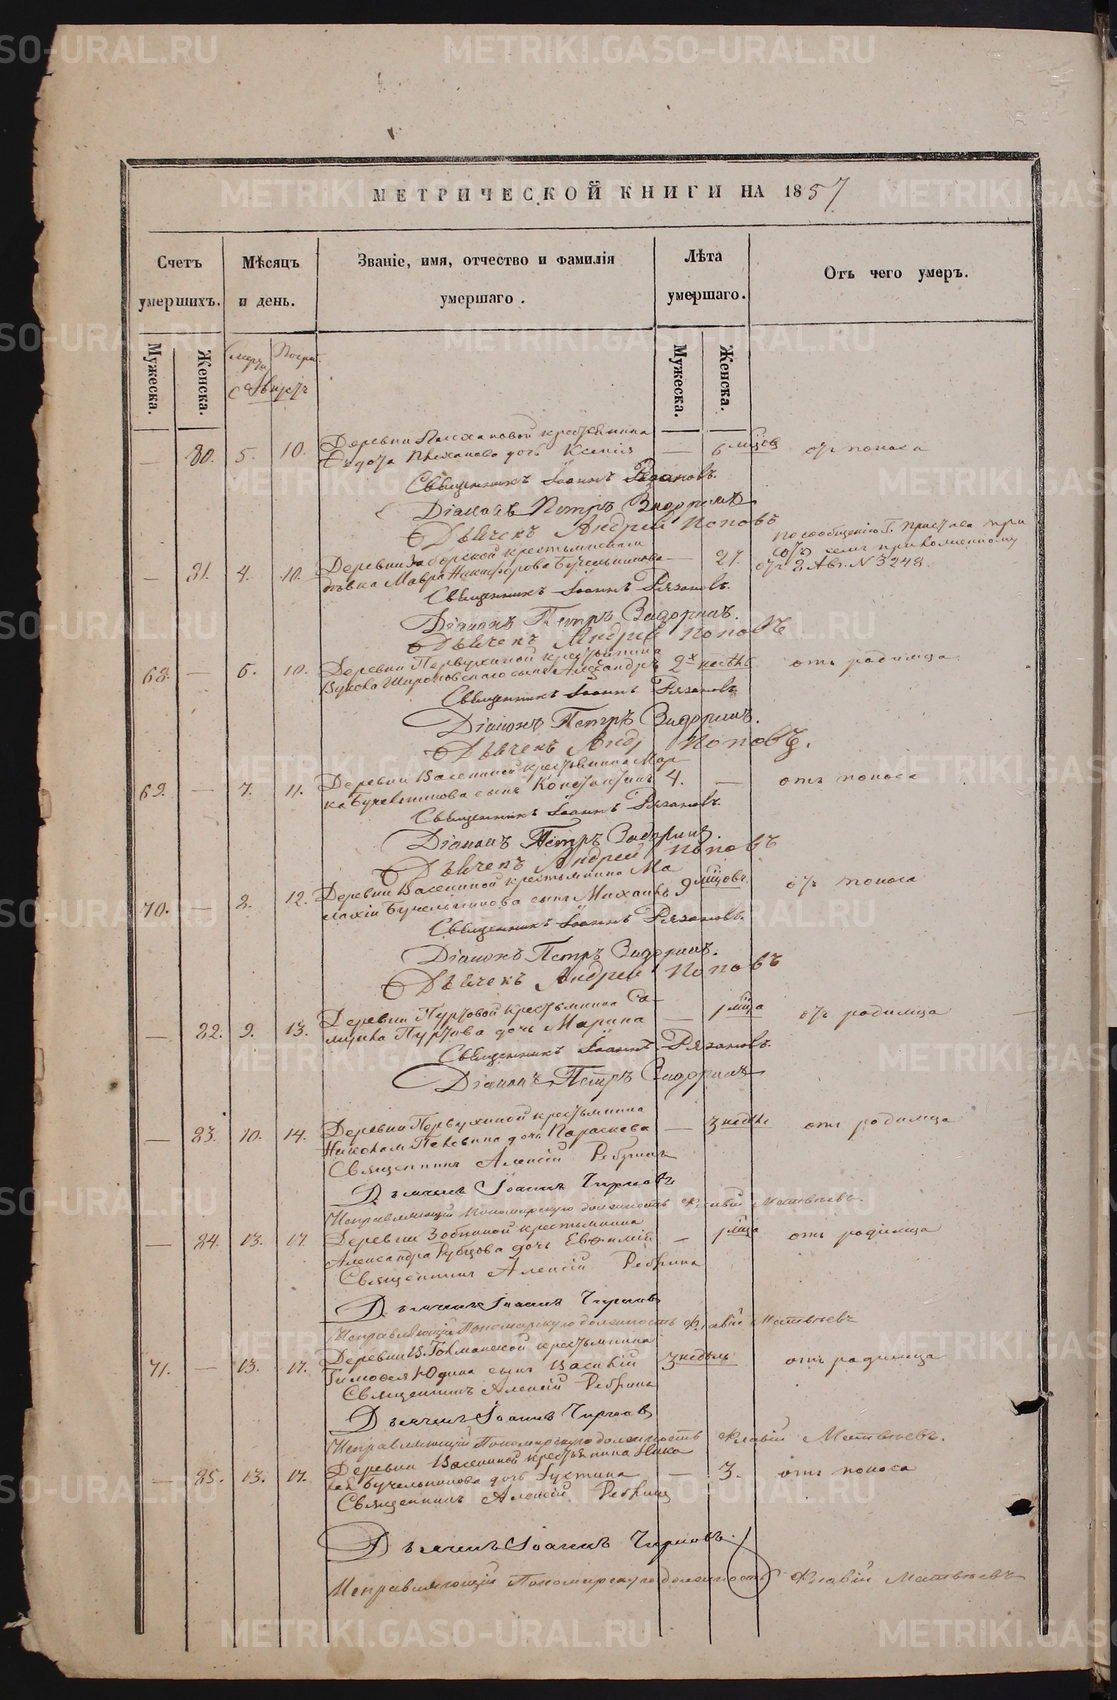 МЕТРИЧЕСКОЙ КНИГИ НА 1857
Счетъ умершихъ.
Мѣсяцъ и день.
Званіе, имя, отчество и фамилія умершаго.
Лѣта умершаго.
Отъ чего умеръ.
Мужеска. Женска. Мужеска. Женска.
Августъ
— 80. 5. 10. Деревни крестьянина — 6 мѣсяц. отъ поноса
Ѳедота дочь Ксенія
Священникъ Іоаннъ Рязановъ.
Діаконъ Петръ Задоринъ
Дьячекъ Андрей Поповъ
— 81. 4. 10. Деревни — 27. по сообщенію Г. Пристава при
дѣвка Мавра Никифорова Бучельникова отъ 2 Авг. N 3248.
Священникъ Іоаннъ Рязановъ.
Діаконъ Петръ Задоринъ.
Дьячекъ Андрей Поповъ
68. — 6. 10. Деревни Первухиной крестьянина
сынъ Александръ 2х недѣль отъ родимца
Священникъ Іоаннъ Рязановъ
Діаконъ Петръ Задоринъ.
Дьячекъ Андр Поповъ.
69. — 7. 11. Деревни Васениной крестьянина Мар
ка Бучельникова сынъ Константинъ 4. — отъ поноса
Священникъ Іоаннъ Рязановъ.
Діаконъ Петръ Задоринъ.
Дьячекъ Андрей Поповъ
70. — 8. 12. Деревни Васениной крестьянина Ма
лахія Бучельникова сынъ Михаилъ 9 мѣсцовъ отъ поноса
Священникъ Іоаннъ Рязановъ.
Діаконъ Петръ Задоринъ.
Дьячекъ Андрей Поповъ
— 82. 9. 13. Деревни Пуртовой крестьянина Са
муила Пуртова дочь Марина — 1 мѣсца отъ родимца
Священникъ Іоаннъ Рязановъ.
Діаконъ Петръ Задоринъ
— 83. 10. 14. Деревни Первухиной крестьянина
дочь Параскева — 3 недѣль отъ родимца
Священникъ Алексій Ребринъ
Дьячекъ Іоаннъ Чирковъ
Исправляющій Пономарскую должность Флавій Матвѣевъ.
— 84. 13. 17. Деревни Зобниной крестьянина
Александра Рубцова дочь Евфимія — 1 мѣсца отъ родимца
Священникъ Алексій Ребринъ
Дьячекъ Іоаннъ Чирковъ
Исправляющій Пономарскую должность Флавій Матвѣевъ
71. — 13. 17. Деревни крестьянина
Тимофея Юдина сынъ Василій 3 недѣль отъ родимца
Священникъ Алексій Ребринъ
Дьячекъ Іоаннъ Чирковъ
Исправляющій Пономарскую должность Флавій Матвѣевъ.
— 85. 13. 17. Деревни Васениной крестьянина
Бучельникова дочь Іустина — 3. отъ поноса
Священникъ Алексій Ребринъ
Дьячекъ Іоаннъ Чирковъ.
Исправляющій Пономарскую должность Флавій Матвѣевъ
METRIKI.GASO-URAL.RU